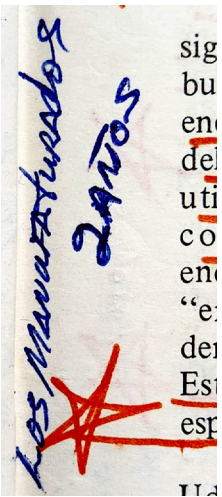 Los Manufacturados
2 AÑOS
sig
bu
enc
del
uti
co
enc
“ex
der
Est
esp